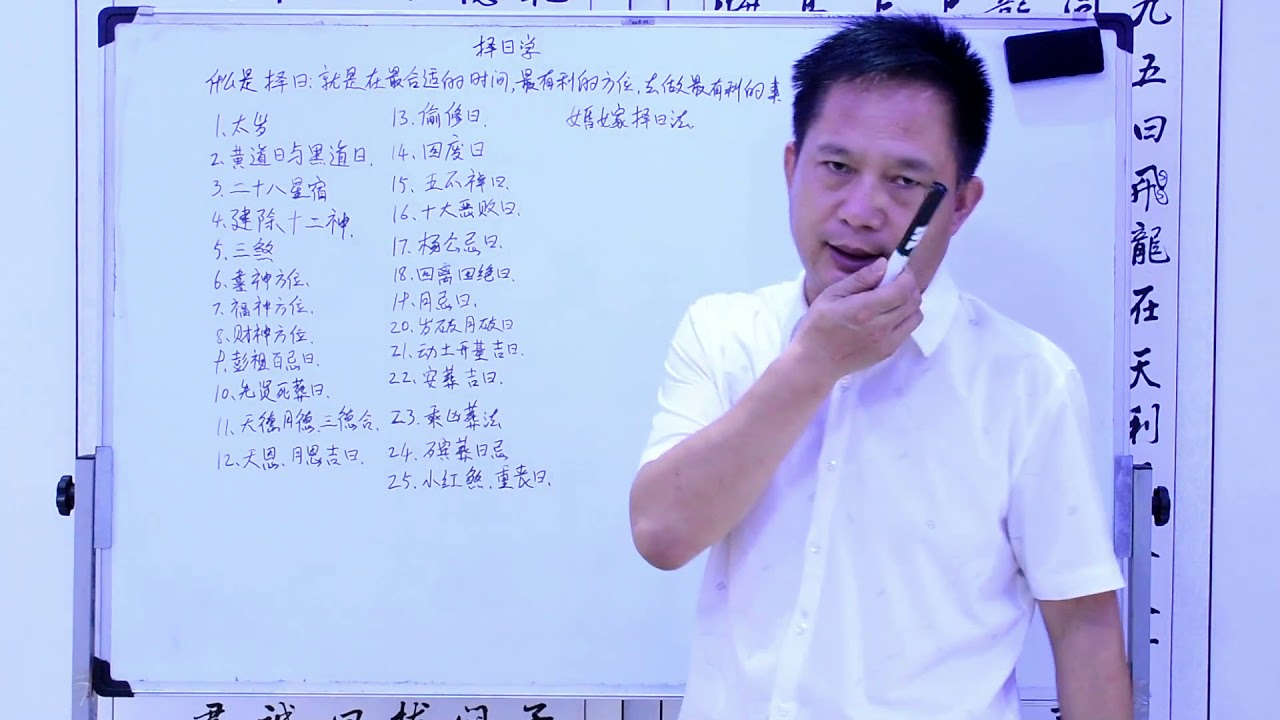 择日学
什么是择日:就是在最合适的时间,最有利的方位,去做最有利的事
1、太岁
2、黄道日与黑道日、
3、二十八星宿
4、建除十二神、
5、三煞
6、喜神方位、
7、福神方位、
8、财神方位、
9、彭祖百忌日、
10、先贤死葬日、
11、天德月德、三德合、
12、天恩、月恩吉日、
13、偷修日、
14、四废日
15、五不祥日、
16、十大恶败日、
17、杨公忌日、
18、四离四绝日、
19、月忌日、
20、岁破月破日
21、动土开基吉日、
22、安葬吉日、
23、乘凶葬法
24、殡葬日忌
25、小红煞、重丧日、
婚嫁择日法
九五曰飛龍在天利